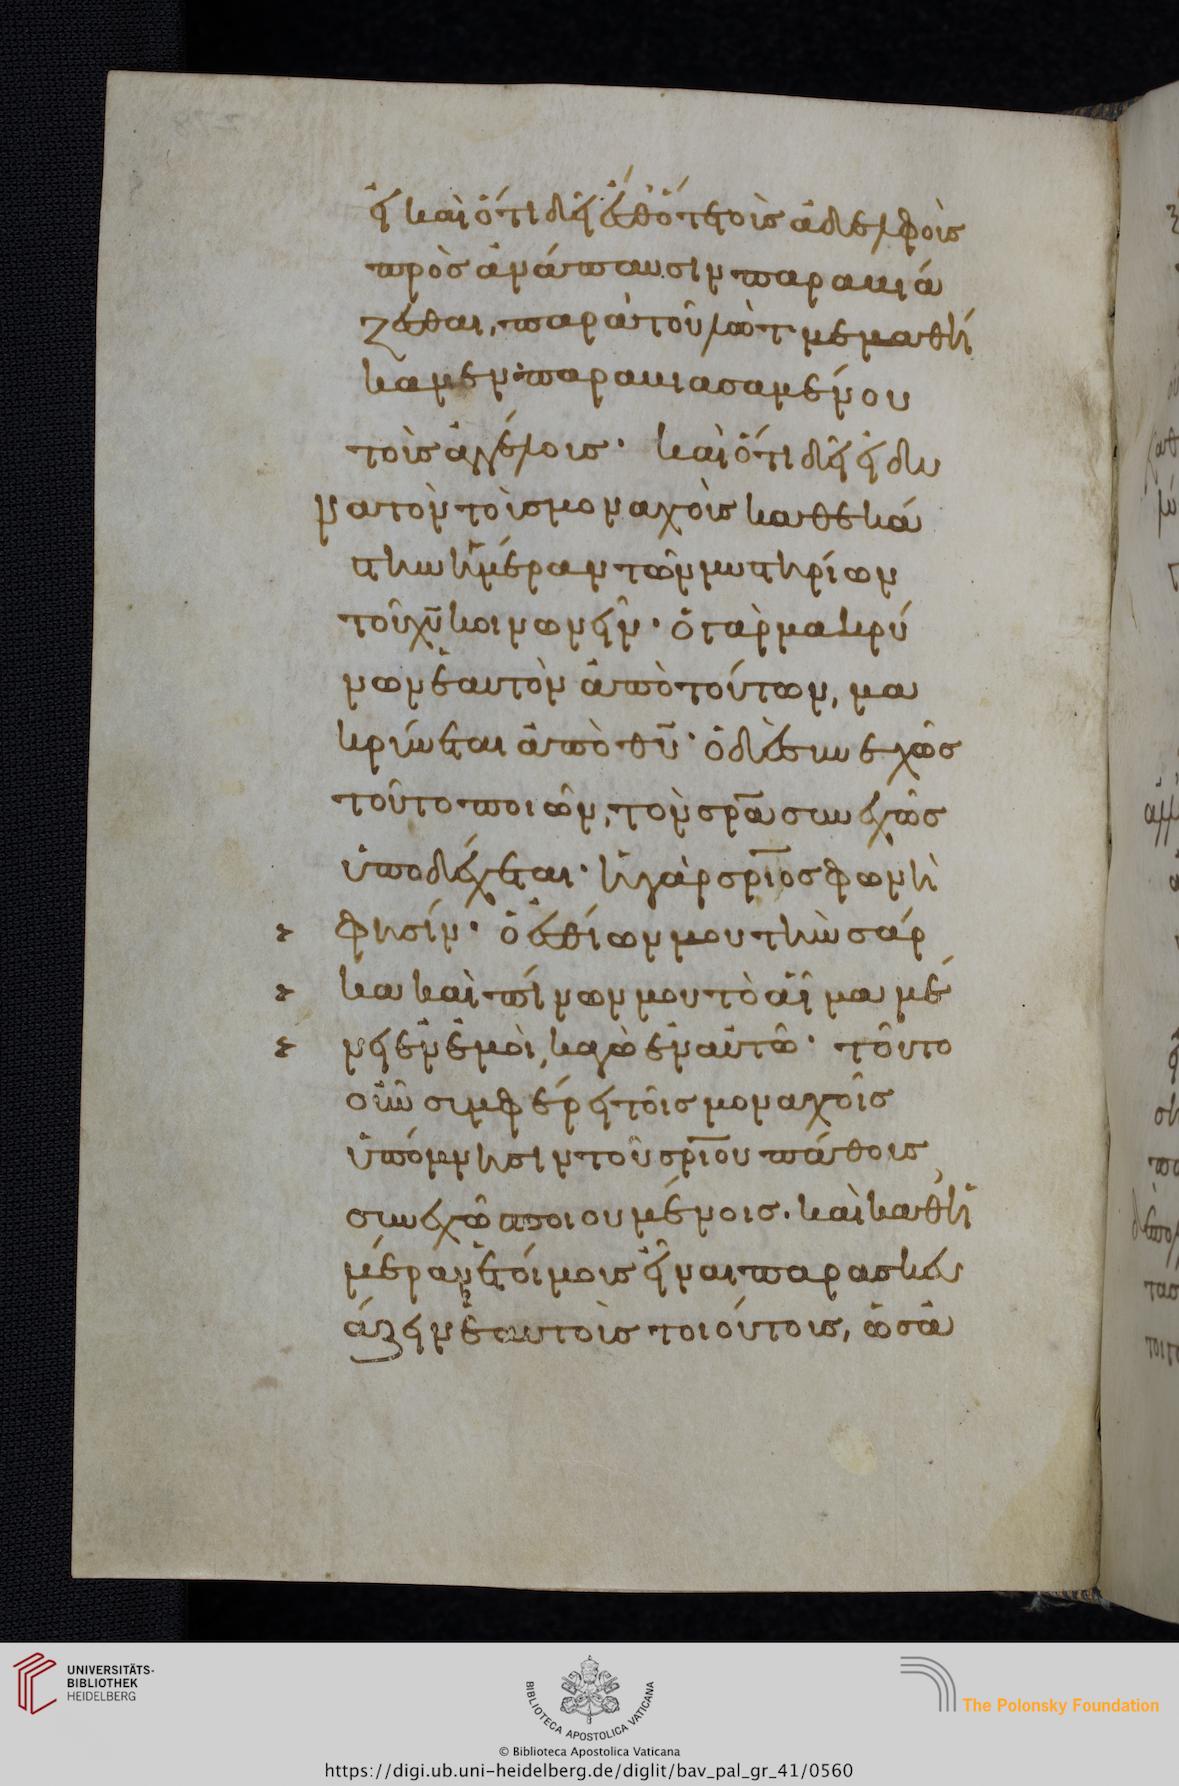 εἶ καὶ ὅτι δεῖ ἔσθ' ὅτε τοῖς ἀδελφοῖς
πρὸς ἀνάπαυσιν παραβιά
ζεσθαι, παρὰ τοῦ λὼτ μεμαθή
καμεν παραβιασαμένου
τοῖς ἀγγέλοις· καὶ ὅτι δεῖ εἰ δυ
νατὸν τοῖς μοναχοῖς καθεκά
στην ἡμέραν τῶν μυστηρίων
τοῦ χῦ κοινωνεῖν· ὁ γὰρ μακρύ
νων ἑαυτὸν ἀπὸ τούτων, μα
κρύνεται ἀπὸ θῦ· ὁ δὲ συνεχῶς
τοῦτο ποιῶν, τὸν σρᾱ συνεχῶς
ὑποδέχεται· ἡ γὰρ σρῑος φωνὴ
φησίν· ὁ ἐσθίων μου τὴν σάρ
κα καὶ πίνων μου τὸ αἷμα μέ
νει ἐν ἐμοὶ, καγὼ ἐν αὐτῶ· τοῦτο
οὖν συμφέρει τοῖς μοναχοῖς
ὑπόμνησιν τοῦ σρῑου πάθους
συνεχῶς ποιουμένοις. καὶ καθ' ἡ
μέραν ἑτοίμοις εἶναι παρασκευ
άζειν ἑαυτοὺς τοιούτους, ὡς ἀ
UNIVERSITÄTS-
BIBLIOTHEK
HEIDELBERG
BIBLIOTECA APOSTOLICA VATICANA
The Polonsky Foundation
© Biblioteca Apostolica Vaticana
https://digi.ub.uni-heidelberg.de/diglit/bav_pal_gr_41/0560